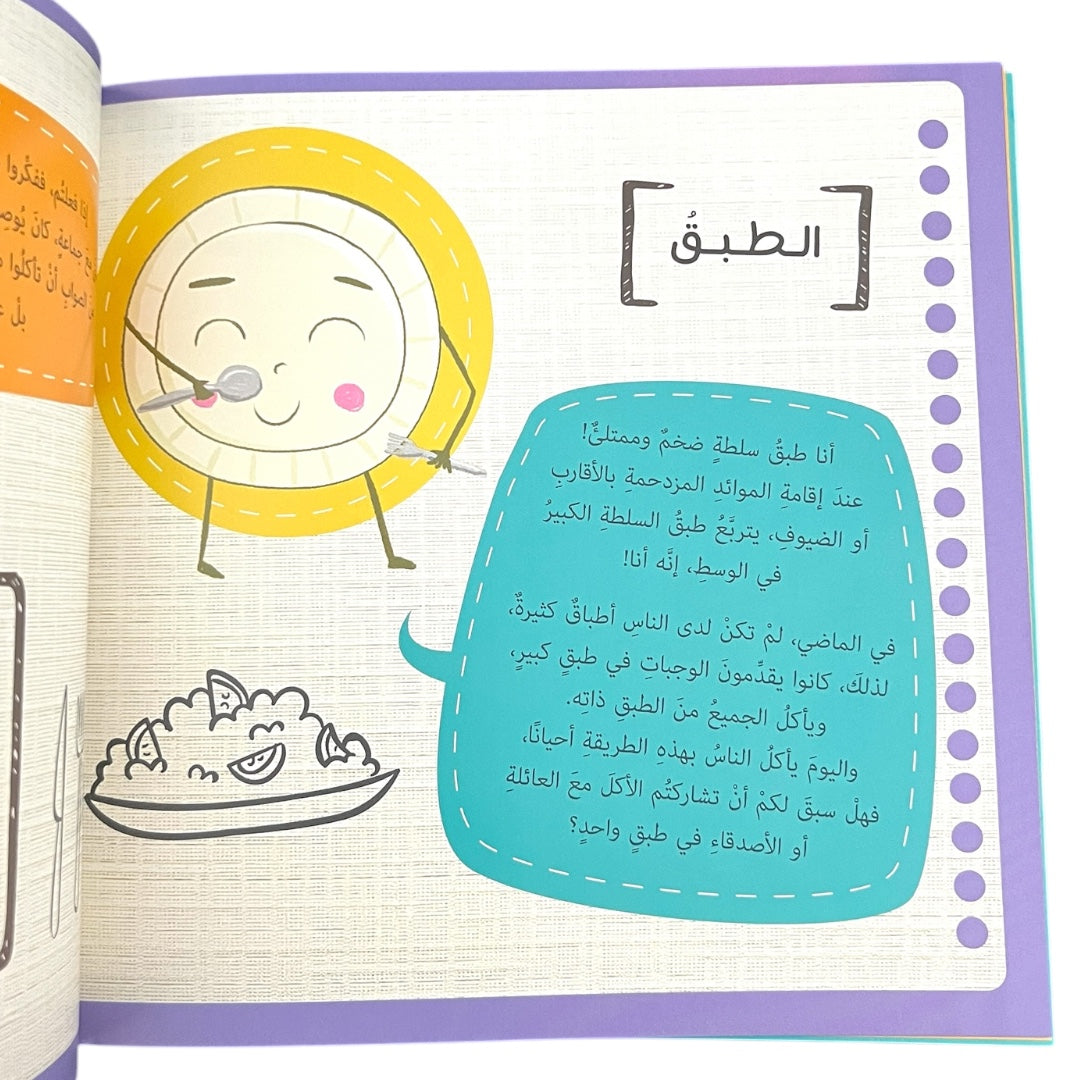 الطبقُ
أنا طبقُ سلطةٍ ضخمٌ وممتلئٌ!
عندَ إقامةِ الموائدِ المزدحمةِ بالأقاربِ
أو الضيوفِ، يتربَّعُ طبقُ السلطةِ الكبيرُ
في الوسطِ، إنَّه أنا!
في الماضي، لمْ تكنْ لدى الناسِ أطباقٌ كثيرةٌ،
لذلكَ، كانوا يقدِّمونَ الوجباتِ في طبقٍ كبيرٍ،
ويأكلُ الجميعُ منَ الطبقِ ذاتِه.
واليومَ يأكلُ الناسُ بهذهِ الطريقةِ أحيانًا،
فهلْ سبقَ لكمْ أنْ تشاركتُم الأكلَ معَ العائلةِ
أو الأصدقاءِ في طبقٍ واحدٍ؟
إذا فعلتُم، ففكِّروا
جماعةٍ، كانَ
الصوابِ أنْ تأكلُوا
بلْ